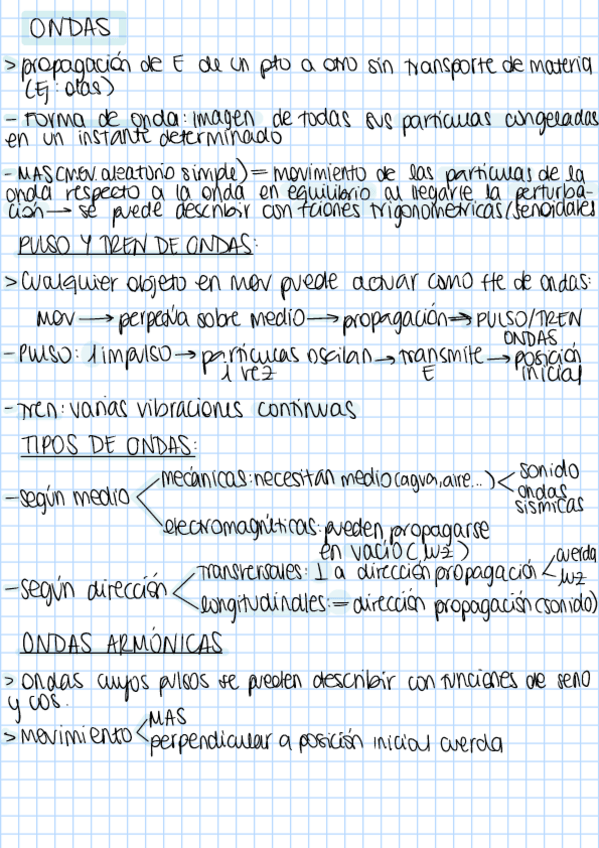 ONDAS
> propagación de E de un pto a otro sin transporte de materia
(Ej: olas)
- Forma de onda: imagen de todas sus partículas congeladas
en un instante determinado
- MAS (mov. aleatorio simple) = movimiento de las partículas de la
onda respecto a la onda en equilibrio al llegarle la perturba-
ción → se puede describir con fciones trigonométricas/senoidales
PULSO Y TREN DE ONDAS:
> Cualquier objeto en mov puede actuar como fte de ondas:
mov → perpedia sobre medio → propagación → PULSO/TREN
ONDAS
- Pulso: 1 impulso → partículas oscilan → transmite → posición
1 vez E inicial
- Tren: varias vibraciones continuas
TIPOS DE ONDAS:
mecánicas: necesitan medio (agua, aire...) < sonido
- según medio < ondas
sísmicas
electromagnéticas: pueden propagarse
en vacío (luz)
transversales: ⊥ a dirección propagación < cuerda
- según dirección < luz
longitudinales: = dirección propagación (sonido)
ONDAS ARMÓNICAS
> ondas cuyos pulsos se pueden describir con funciones de seno
y cos.
> movimiento < MAS
perpendicular a posición inicial cuerda